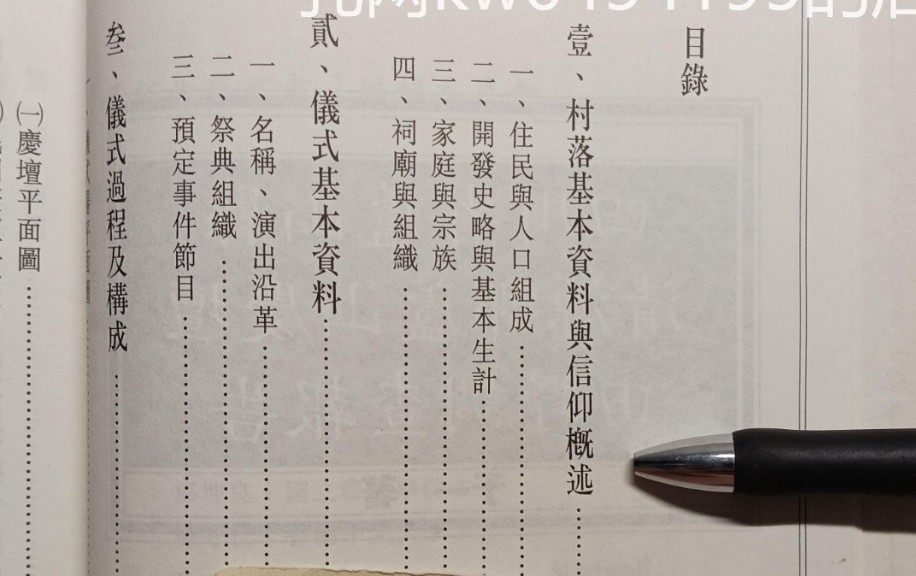 目錄
壹、村落基本資料與信仰概述
一、住民與人口組成
二、開發史略與基本生計
三、家庭與宗族
四、祠廟與組織
貳、儀式基本資料
一、名稱、演出沿革
二、祭典組織
三、預定事件節目
叁、儀式過程及構成
㈠慶壇平面圖